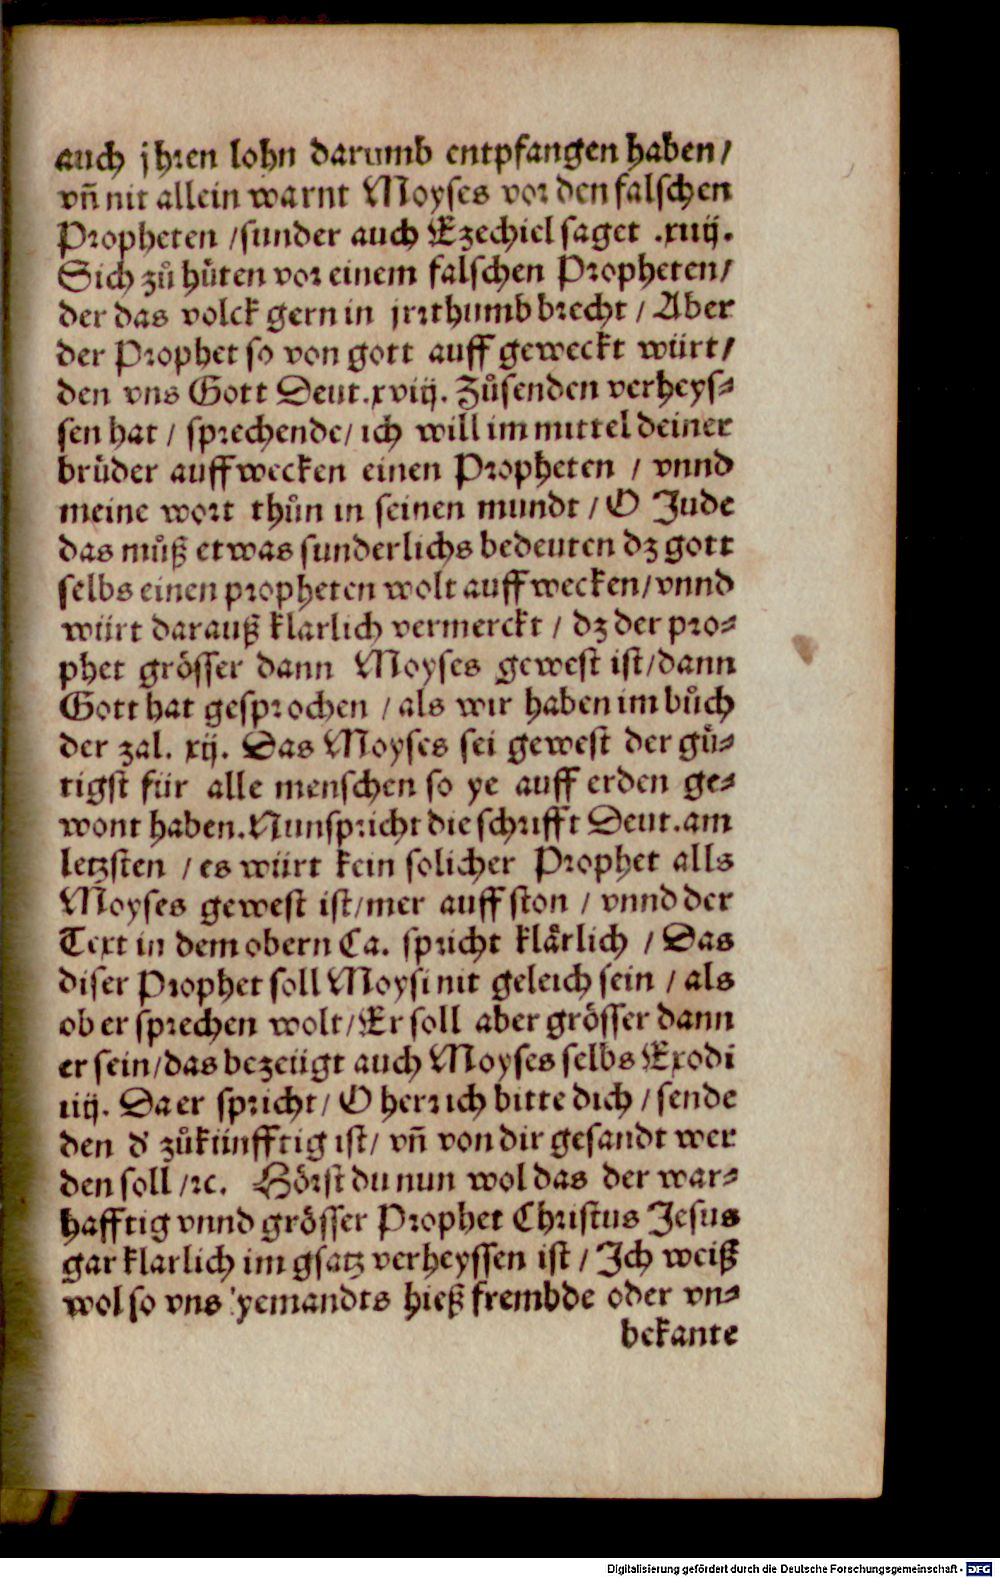 auch jhren lohn darumb entpfangen haben/
vñ nit allein warnt Moyses vor den falschen
Propheten /sunder auch Ezechiel saget .xiij.
Sich zů hůten vor einem falschen Propheten/
der das volck gern in jrrthumb brecht / Aber
der Prophet so von gott auff geweckt würt/
den vns Gott Deut.xviij. Zůsenden verheys⸗
sen hat / sprechende/ ich will im mittel deiner
brůder auffwecken einen Propheten / vnnd
meine wort thůn in seinen mundt / O Jude
das můß etwas sunderlichs bedeuten dz gott
selbs einen propheten wolt auffwecken/vnnd
würt darauß klarlich vermerckt / dz der pro⸗
phet grösser dann Moyses gewest ist/dann
Gott hat gesprochen / als wir haben im bůch
der zal. xij. Das Moyses sei gewest der gů⸗
tigst für alle menschen so ye auff erden ge⸗
wont haben.Nun spricht die schrifft Deut.am
letzsten / es würt kein solicher Prophet alls
Moyses gewest ist/mer auff ston / vnnd der
Text in dem obern Ca. spricht klärlich / Das
diser Prophet soll Moysi nit geleich sein / als
ob er sprechen wolt/Er soll aber grösser dann
er sein/das bezeügt auch Moyses selbs Exodi
iiij. Da er spricht/ O herr ich bitte dich / sende
den d' zůkünfftig ist/ vñ von dir gesandt wer
den soll /ꝛc. Hörst du nun wol das der war⸗
hafftig vnnd grösser Prophet Christus Jesus
gar klarlich im gsatz verheyssen ist / Ich weiß
wol so vns yemandts hieß frembde oder vn⸗
bekante
Digitalisierung gefördert durch die Deutsche Forschungsgemeinschaft - DFG